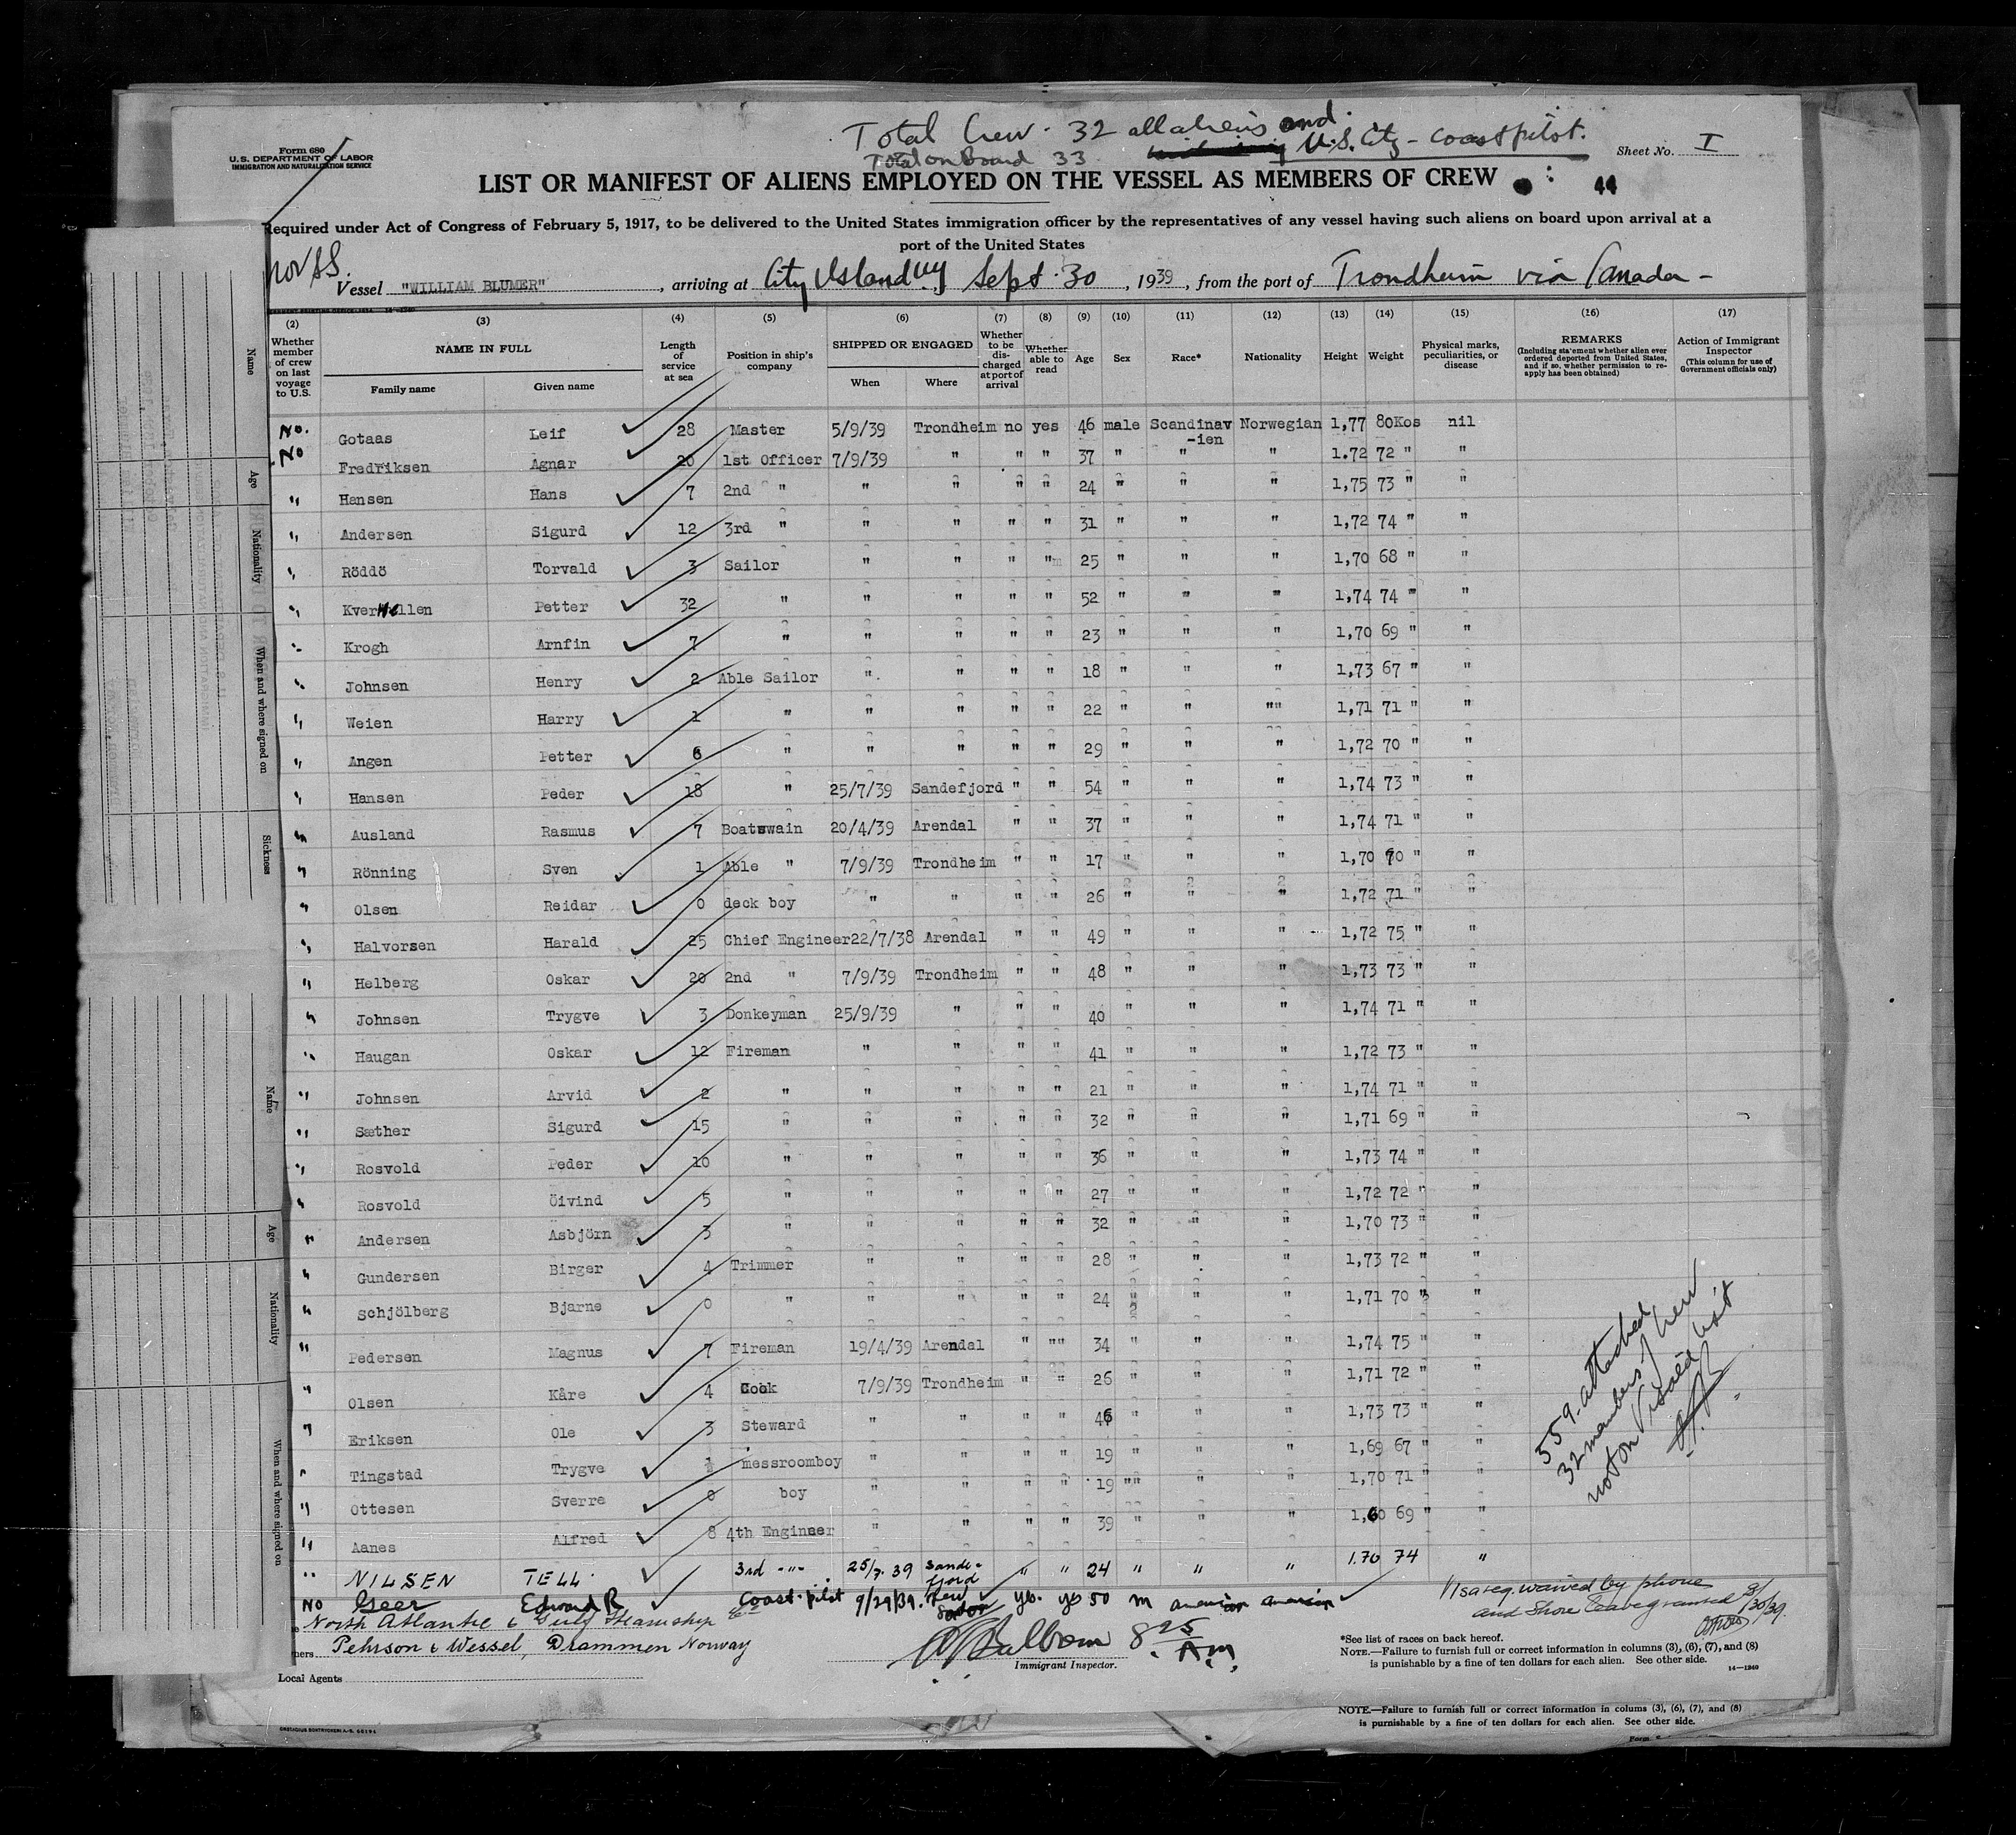 Total Crew. 32 all aliens and
U.S. Ctz - Coast pilot.
Total on Board 33
Form 680
U.S. DEPARTMENT OF LABOR
IMMIGRATION AND NATURALIZATION SERVICE
Sheet No. I
LIST OR MANIFEST OF ALIENS EMPLOYED ON THE VESSEL AS MEMBERS OF CREW
44
Required under Act of Congress of February 5, 1917, to be delivered to the United States immigration officer by the representatives of any vessel having such aliens on board upon arrival at a
port of the United States
Nor SS.
Vessel "WILLIAM BLUMER", arriving at City Island NY Sept. 30, 1939, from the port of Trondheim via Canada -
(2) (3) (4) (5) (6) (7) (8) (9) (10) (11) (12) (13) (14) (15) (16) (17)
Whether member of crew on last voyage to U.S. NAME IN FULL Family name Given name Length of service at sea Position in ship's company SHIPPED OR ENGAGED When Where Whether to be discharged at port of arrival Whether able to read Age Sex Race* Nationality Height Weight Physical marks, peculiarities, or disease REMARKS (Including statement whether alien ever ordered deported from United States, and if so, whether permission to reapply has been obtained) Action of Immigrant Inspector (This column for use of Government officials only)
No. Gotaas Leif 28 Master 5/9/39 Trondheim no yes 46 male Scandinav-ien Norwegian 1,77 80Kos nil
No Fredriksen Agnar 20 1st Officer 7/9/39 " " " 37 " " " 1.72 72 " "
" Hansen Hans 7 2nd " " " " " 24 " " " 1,75 73 " "
" Andersen Sigurd 12 3rd " " " " " 31 " " " 1,72 74 " "
" Röddö Torvald 3 Sailor " " " " 25 " " " 1,70 68 " "
" Kverhellen Petter 32 " " " " " 52 " " " 1,74 74 " "
" Krogh Arnfin 7 " " " " " 23 " " " 1,70 69 " "
" Johnsen Henry 2 Able Sailor " " " " 18 " " " 1,73 67 " "
" Weien Harry 1 " " " " " 22 " " "" 1,71 71 " "
" Angen Petter 6 " " " " " 29 " " " 1,72 70 " "
" Hansen Peder 18 " 25/7/39 Sandefjord " " 54 " " " 1,74 73 " "
" Ausland Rasmus 7 Boatswain 20/4/39 Arendal " " 37 " " " 1,74 71 " "
" Rönning Sven 1 Able " 7/9/39 Trondheim " " 17 " " " 1,70 70 " "
" Olsen Reidar 0 deck boy " " " " 26 " " " 1,72 71 " "
" Halvorsen Harald 25 Chief Engineer 22/7/38 Arendal " " 49 " " " 1,72 75 " "
" Helberg Oskar 20 2nd " 7/9/39 Trondheim " " 48 " " " 1,73 73 " "
" Johnsen Trygve 3 Donkeyman 25/9/39 " " " 40 " " " 1,74 71 " "
" Haugan Oskar 12 Fireman " " " " 41 " " " 1,72 73 " "
" Johnsen Arvid 2 " " " " " 21 " " " 1,74 71 " "
" Sæther Sigurd 15 " " " " " 32 " " " 1,71 69 " "
" Rosvold Peder 10 " " " " " 36 " " " 1,73 74 " "
" Rosvold Öivind 5 " " " " " 27 " " " 1,72 72 " "
" Andersen Asbjörn 3 " " " " " 32 " " " 1,70 73 " "
" Gundersen Birger 4 Trimmer " " " " 28 " " " 1,73 72 " "
" Schjölberg Bjarne 0 " " " " " 24 " " " 1,71 70 " "
" Pedersen Magnus 7 Fireman 19/4/39 Arendal " "" 34 " " " 1,74 75 " "
" Olsen Kåre 4 Cook 7/9/39 Trondheim " " 26 " " " 1,71 72 " "
" Eriksen Ole 3 Steward " " " " 46 " " " 1,73 73 " "
" Tingstad Trygve 1 messroomboy " " " " 19 " " " 1,69 67 " "
" Ottesen Sverre 0 boy " " " " 19 "" " " 1,70 71 " "
" Aanes Alfred 8 4th Engineer " " " " 39 " " " 1,60 69 " "
" NILSEN TELL. 3rd -"- 25/7. 39 Sandefjord " " 24 " " " 1.70 74 "
No Geer Edward R Coast. pilot 9/29/39. yes. yes 50 m american american
559. attached
32 members of crew
not on Visaed list
Visa req. waived by phone
and Shore leave granted 9/30/39.
North Atlantic & Gulf Steamship Co
Pehrson & Wessel, Drammen Norway
8 25 A.M.
Immigrant Inspector.
Local Agents
*See list of races on back hereof.
NOTE.—Failure to furnish full or correct information in columns (3), (6), (7), and (8)
is punishable by a fine of ten dollars for each alien. See other side.
14—1240
NOTE.—Failure to furnish full or correct information in colums (3), (6), (7), and (8)
is punishable by a fine of ten dollars for each alien. See other side.
Form
Name
Age
Nationality
When and where signed on
Sickness
Name
Age
Nationality
When and where signed on